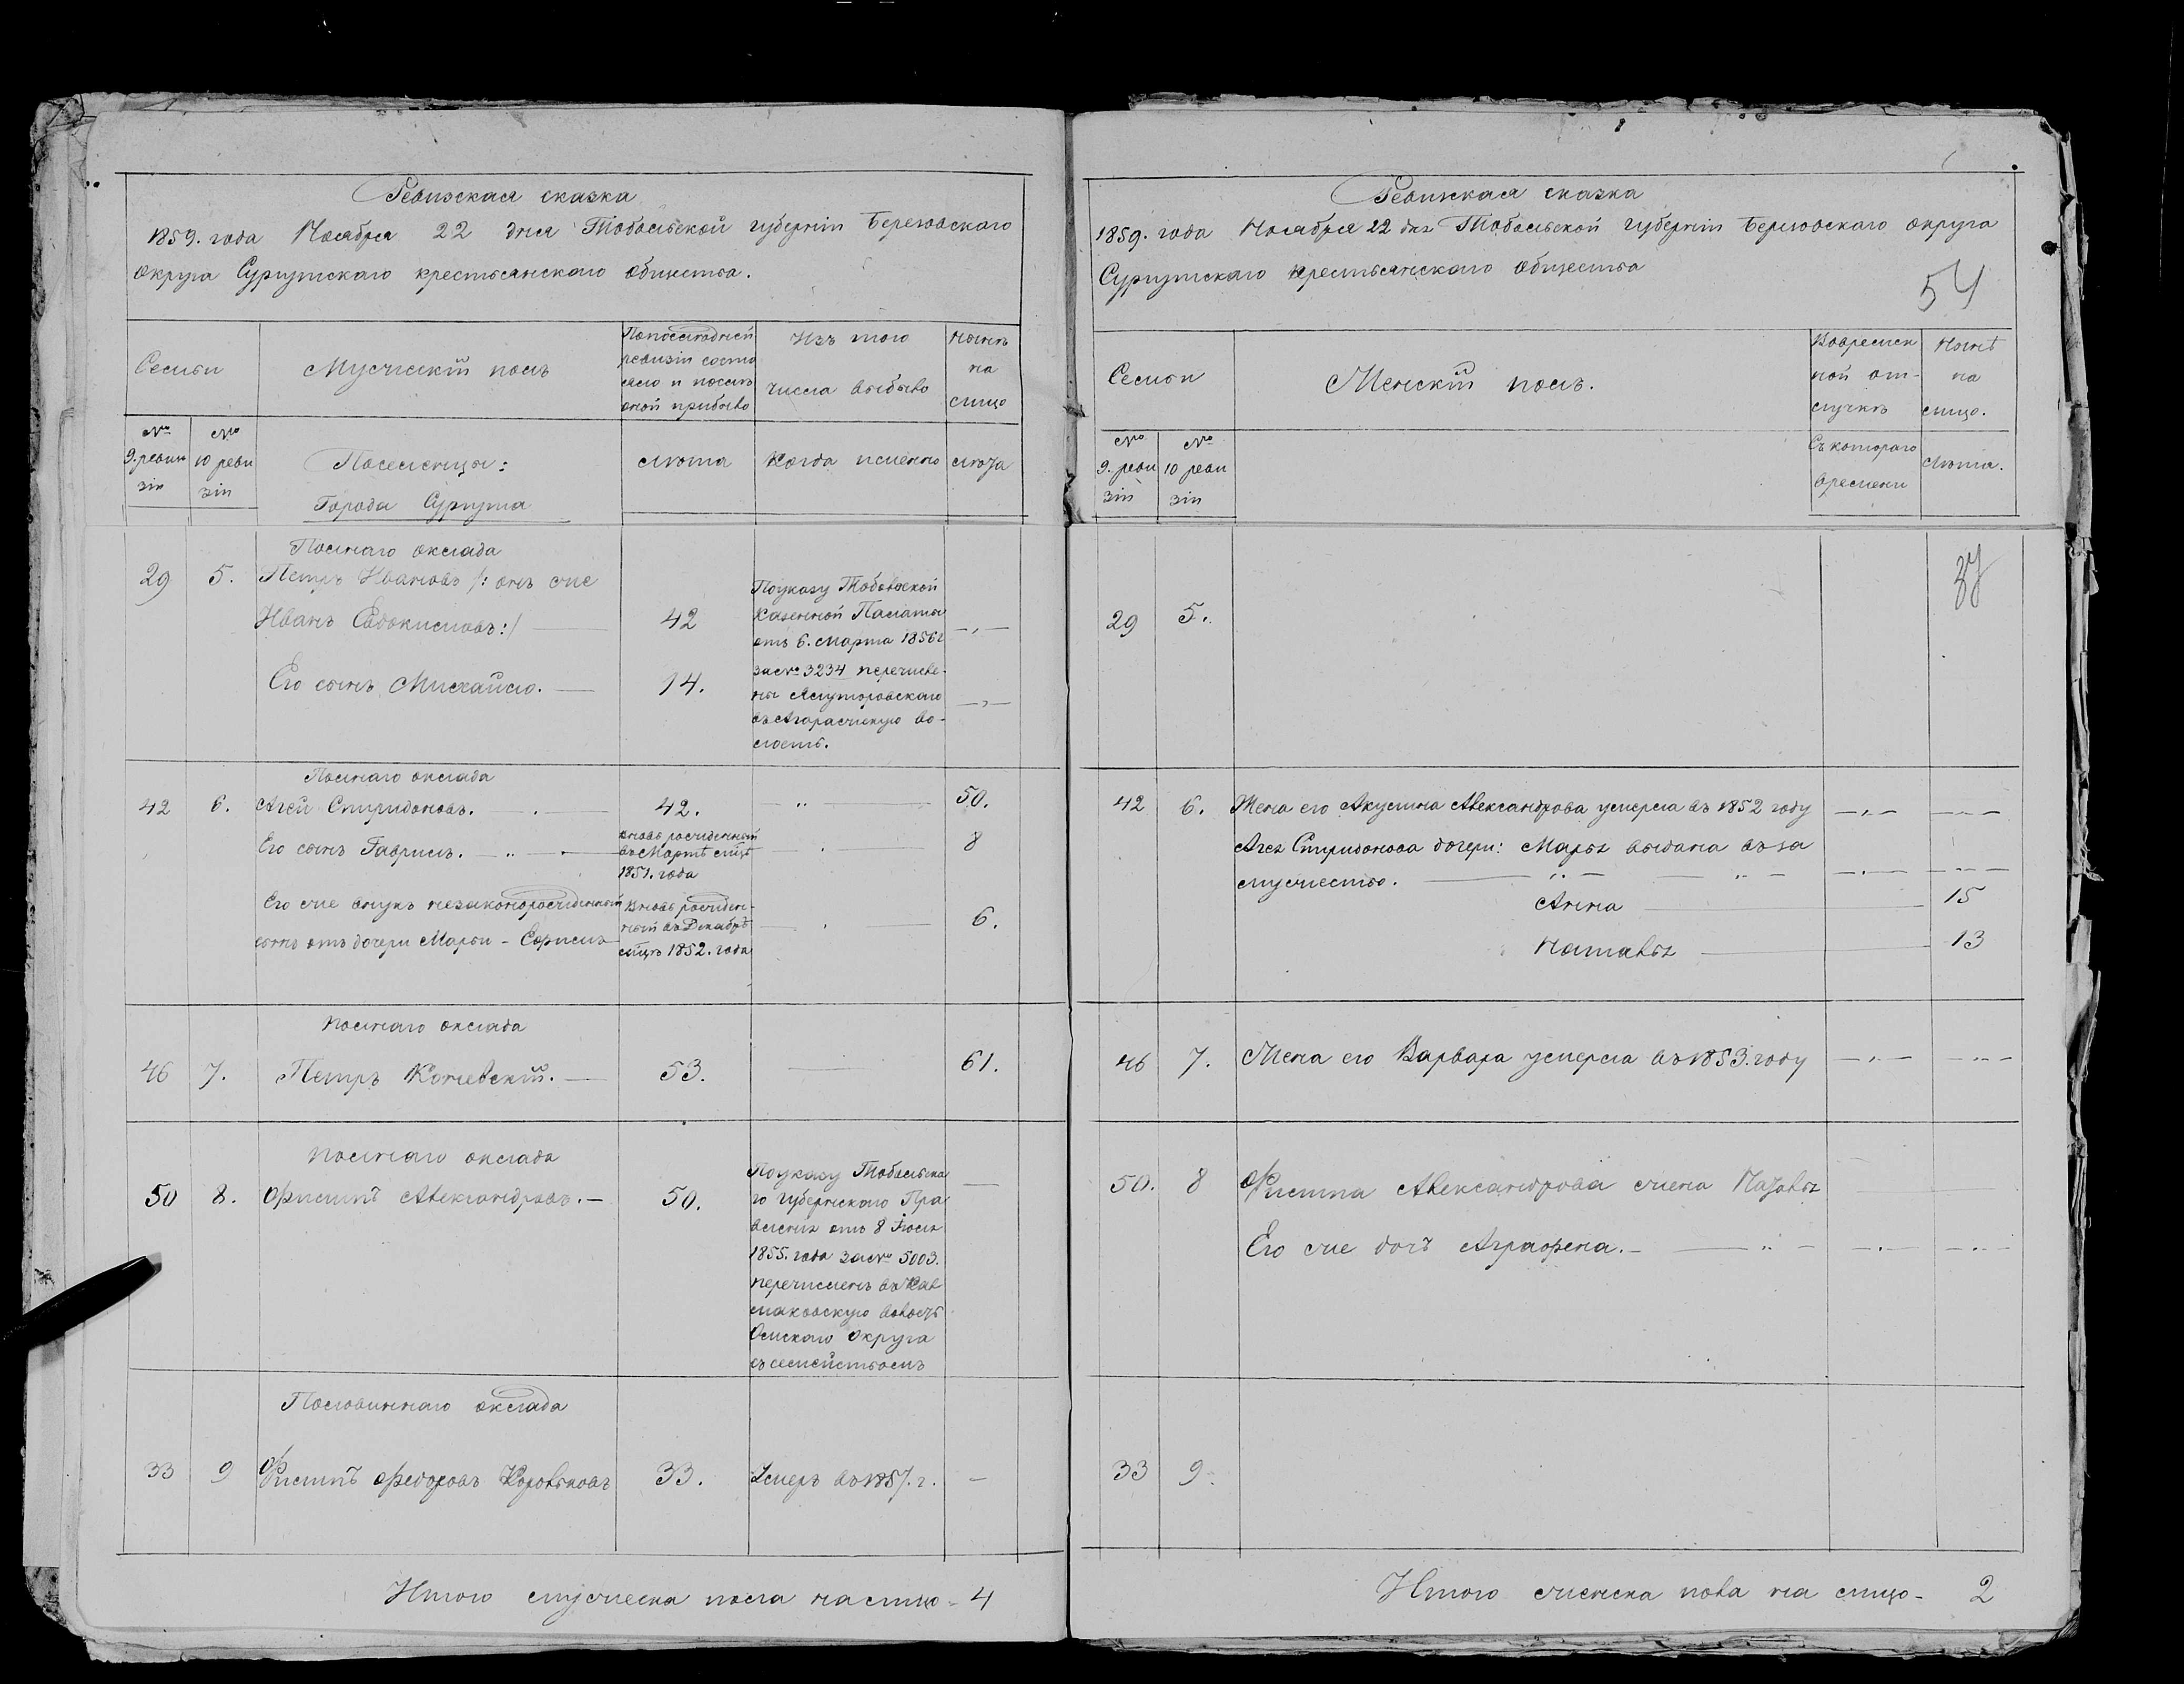 Ревизская сказка
1859. года Ноября 22 дня Тобольской губернiи Березовскаго
округа Сургутскаго крестьянскаго общества.
Семьи
Мужескiй полъ
Попоследней
ревизiи состо
яло и послѣ
оной прибыло
Изъ того
числа выбыло
Нынѣ
на
лицо
№
9. реви
зiи
№
10 реви
зiи
Поселенцы:
Города Сургута
лѣта
Когда именно
лѣта
29 5.
Полнаго оклада
Петръ Ивановъ /: онъ же
Иванъ Евдокимовъ :/ 42
Его сынъ Михайло. 14.
Поуказу Тобольской
Казенной Палаты
отъ 6. марта 1856 г
за № 3234 перечисле-
ны Ялуторовскаго
волость.
Полнаго оклада
42 6. Агей Спиридоновъ. 42. 50.
Его сынъ Гаврилъ. 8
вновь рожденный
въ Мартѣ мцѣ
1851. года
Его же внукъ незаконорожденный
сынъ отъ дочери Марьи - Ефимъ 6.
Вновь рожден-
ный въ Декабрѣ
мцѣ 1852. года
Полнаго оклада
46 7. Петръ 53. 61.
Полнаго оклада
50 8. Филипъ Александровъ. 50.
Поуказу Тобольска
го Губернскаго Пра
вленiя отъ 8 Iюля
1855. года за № 5003.
перечисленъ въ Кал
маковскую волость
Омскаго округа
съ семействомъ
Половиннаго оклада
33 9 Филипъ Федоровъ 33. Умеръ въ 1857. г.
Итого мужеска пола налицо - 4
Ревизская сказка
1859. года Ноября 22 дня Тобольской губернiи Березовскаго округа
Сургутскаго крестьянскаго общества
54
Семьи
Женскiй полъ.
Вовремен
ной от-
лучкѣ
Нынѣ
на
лицо.
№
9. реви
зiи
№
10 реви
зiи
Съ котораго
времени
Лѣта.
29 5.
42 6. Жена его Акулина Александрова умерла въ 1852 году
Агея Спиридонова дочери: Марья выдана въ за
мужество.
Анна 15
Наталья 13
46 7. Жена его Варвара умерла въ 1853. году
50. 8 Филипа Александрова жена
Его же дочь Аграфена.
33 9.
Итого женска пола на лицо - 2